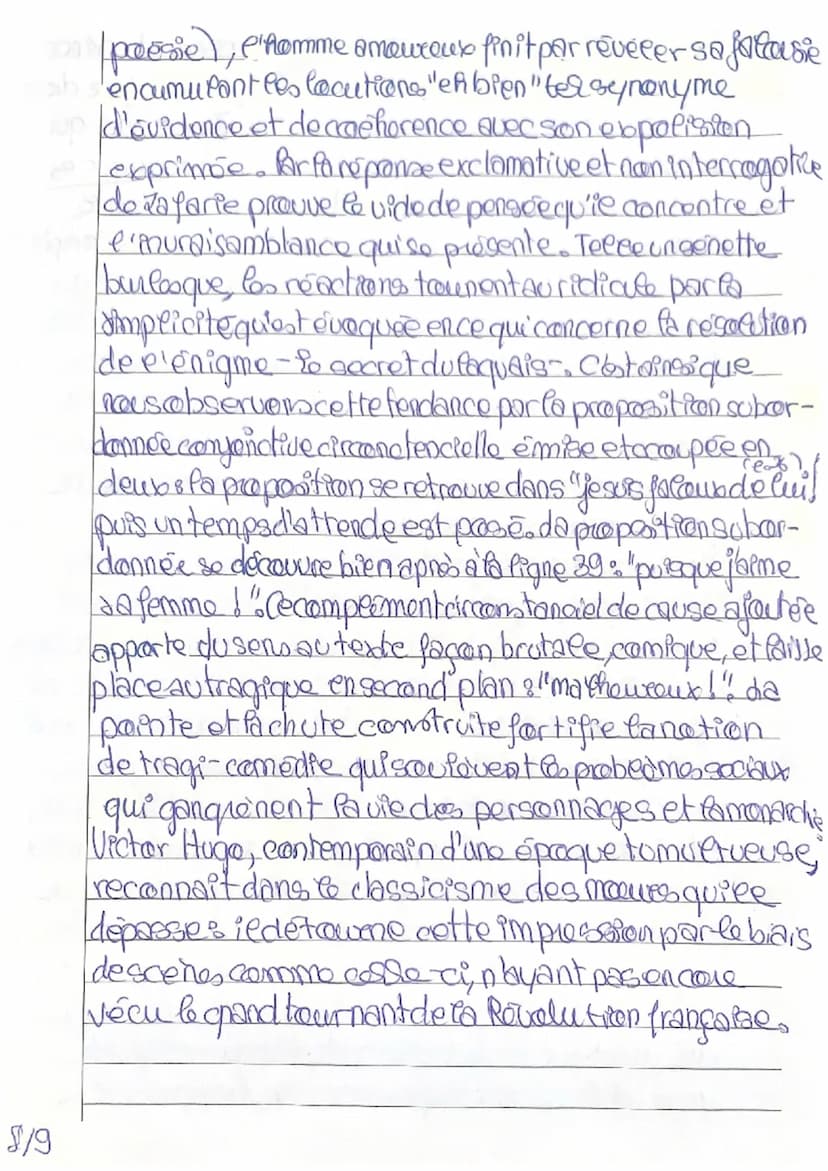 poésie), l'homme amoureux finit par révéler sa jalousie
en cumulant les locutions "eh bien" tel synonyme
d'évidence et de cohérence avec son explosion
exprimée. Par la réponse exclamative et non interrogative
de Zafari prouve le vide de pensée qu'il concentre et
l'invraisemblance qui se présente. Telle une
burlesque, les réactions tournent au ridicule par la
simplicité qui est évoquée en ce qui concerne la résolution
de l'énigme - le secret du laquais -. C'est ainsi que
nous observons cette tendance par la proposition subor-
donnée conjonctive circonstancielle émise et coupée en
deux : la proposition se retrouve dans "je suis jaloux de lui!
puis un temps d'attende est posé. La proposition subor-
donnée se découvre bien après à la ligne 39 : "puisque j'aime
sa femme !". Ce complément circonstanciel de cause ajoutée
apporte du sens au texte façon brutale, comique, et laisse
place au tragique en second plan : "malheureux !". La
pointe et la chute construite fortifie la notion
de tragi-comédie qui soulèvent les problèmes sociaux
qui gangrènent la vie des personnages et la monarchie
Victor Hugo, contemporain d'une époque tumultueuse,
reconnaît dans le classicisme des moeurs qu'il
dépasse : il détourne cette impression par le biais
de scènes comme celle-ci, n'ayant pas encore
vécu le grand tournant de la Révolution française.
8/9